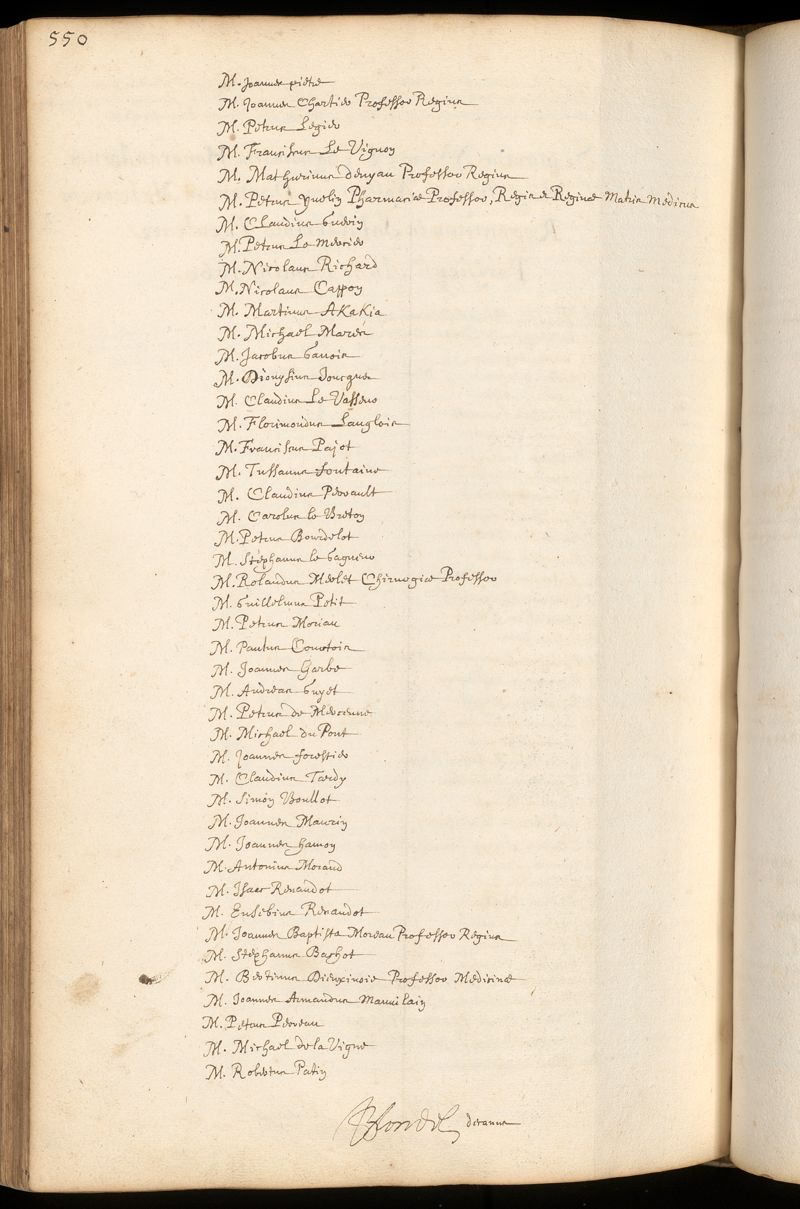 550
M. Joannes pietre
M. Joannes Chartier Professor Regius
M. Petrus Legier
M. Franciscus Le Vignon
M. Mathurinus denyau Professor Regius
M. Petrus yvelin Pharmaciæ Professor, Regis et Reginæ Matris Medicus
M. Claudius Guerin
M. Petrus Le mercier
M. Nicolaus Richard
M. Nicolaus Cappon
M. Martinus AKaKia
M. Michael Mares
M. Jacobus Gavois
M. Dionysius Joncquet
M. Claudius Le Vasseur
M. Florimondus Langlois
M. Franciscus Pajot
M. Tussanus fontaine
M. Claudius Perrault
M. Carolus le Breton
M. Petrus Bourdelot
M. Stephanus le Gagneur
M. Rolandus Merlet Chirurgiæ Professor
M. Guillelmus Petit
M. Petrus Moriau
M. Paulus Courtois
M. Joannes Garbe
M. Andreas Guyet
M. Petrus de Mercenne
M. Michael du Pont
M. Joannes forestier
M. Claudius Tardy
M. Simon Boullot
M. Joannes Maurin
M. Joannes hamon
M. Antonius Morand
M. Isaac Renaudot
M. Eusebius Renaudot
M. Joannes Baptista Moreau Professor Regius
M. Stephanus Bachot
M. Bertinus Dieuxivoie Professor Medicinæ
M. Joannes Armandus Mauvilain
M. Petrus Perreau
M. Michael de la Vigne
M. Robertus Patin
Blondel decanus